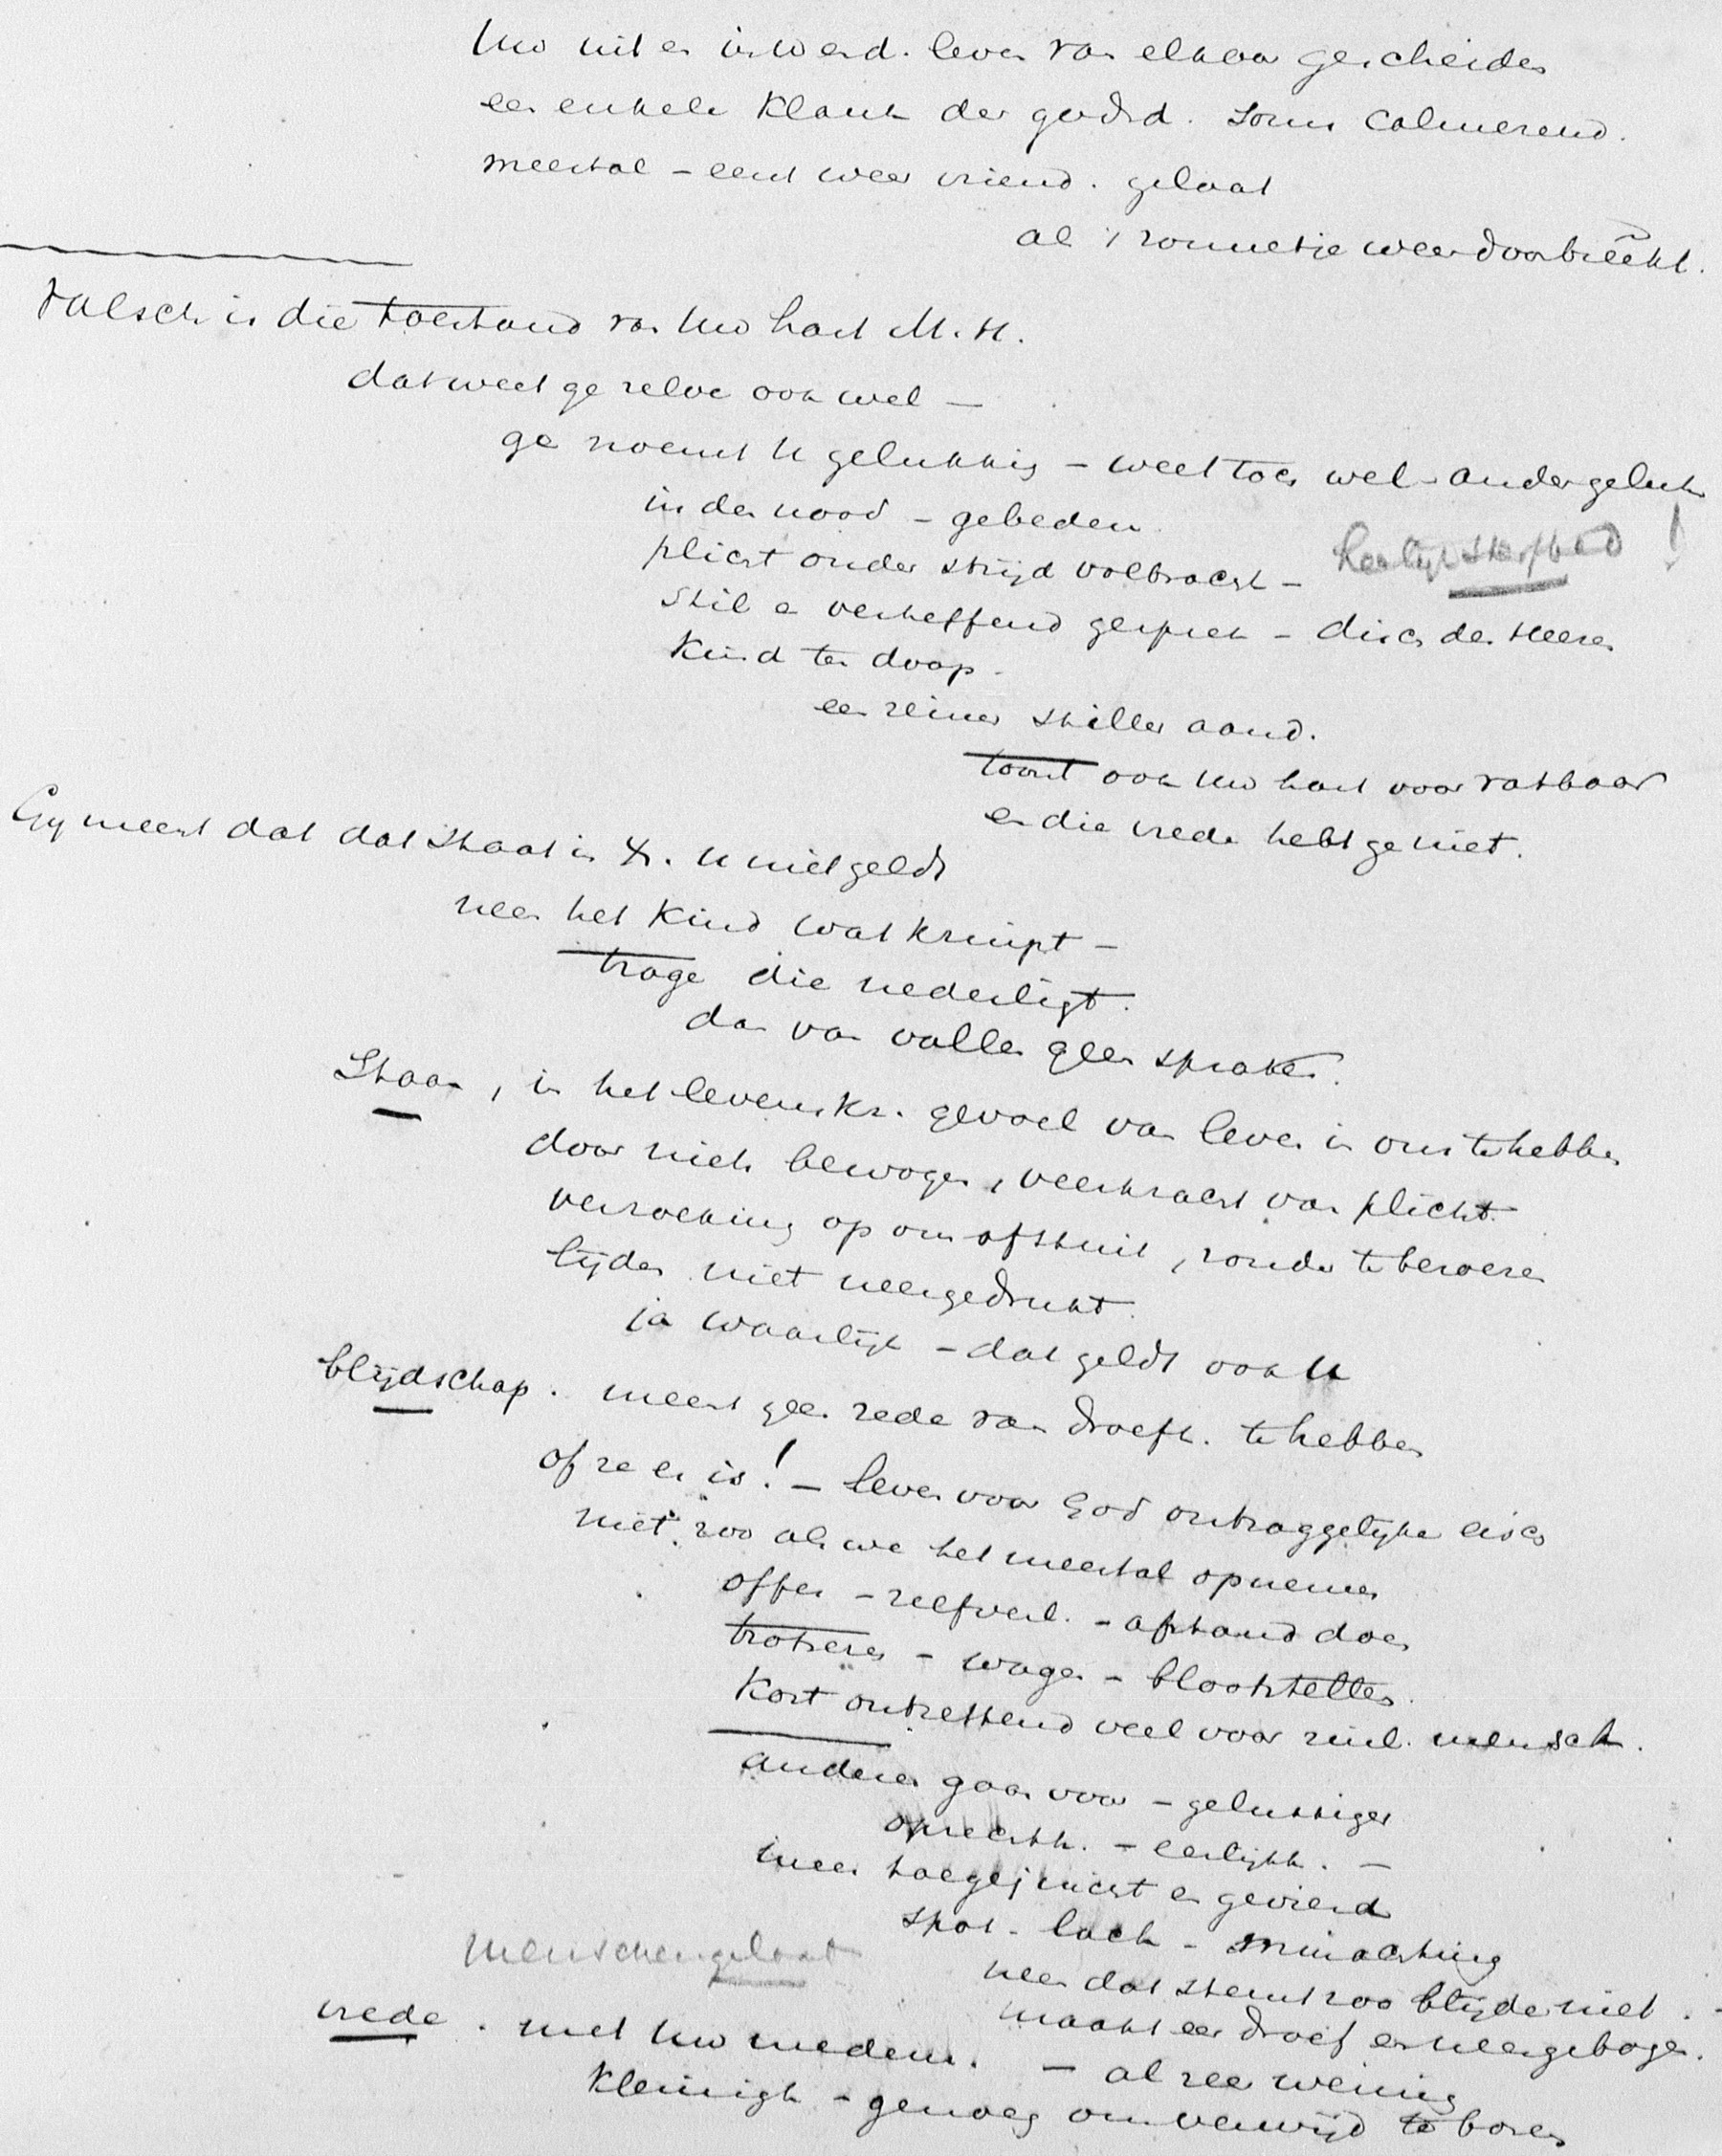 Uw uit en inwend. leven van elkaar gescheiden
een enkele klank der godsd. soms calmerend.
meestal – eens weer vriend. gelaat
als 't zonnetje weer doorbreekt.
Valsch is die toestand van Uw hart M. H.
dat weet ge zelve ook wel –
ge noemt U gelukkig – weet toch wel ander geluk
in den nood – gebeden
plicht onder strijd volbracht – heerlijk sterfbed !
stil en verheffend gesprek – disch des Heeren
kind ten doop –
een reinen stillen avond.
toont ook Uw hart voor vatbaar
en die vrede hebt ge niet.
Gij meent dat dat staat in Xr. U niet geldt
neen het kind wat kruipt –
trage die nederligt.
dan van vallen geen sprake.
Staan, in het levenskr. gevoel van leven in ons te hebben
door niets bewogen, veerkracht van plicht
verzoeking op ons afstuit, zonder te beroeren
lijden niet neergedrukt
ja waarlijk – dat geldt ook U
blijdschap. meent geen rede van droefh. te hebben
of ze er is! – leven voor God ontzaggelijke eisch
niet zoo als we het meestal opnemen
offer – zelfverl. – afstand doen
trotseren – wagen – blootstellen
Kort ontzettend veel voor zinl. mensch.
anderen gaan voor – gelukkiger
oprechth. – eerlijkh. –
meer toegejuicht en gevierd
spot – lach – minachting
neen dat stemt zoo blijde niet.
menschengelaat
maakt eer droef en neergebogen.
vrede. met Uw medem. – al zeer weinig
kleinigh – genoeg om verwijd te horen